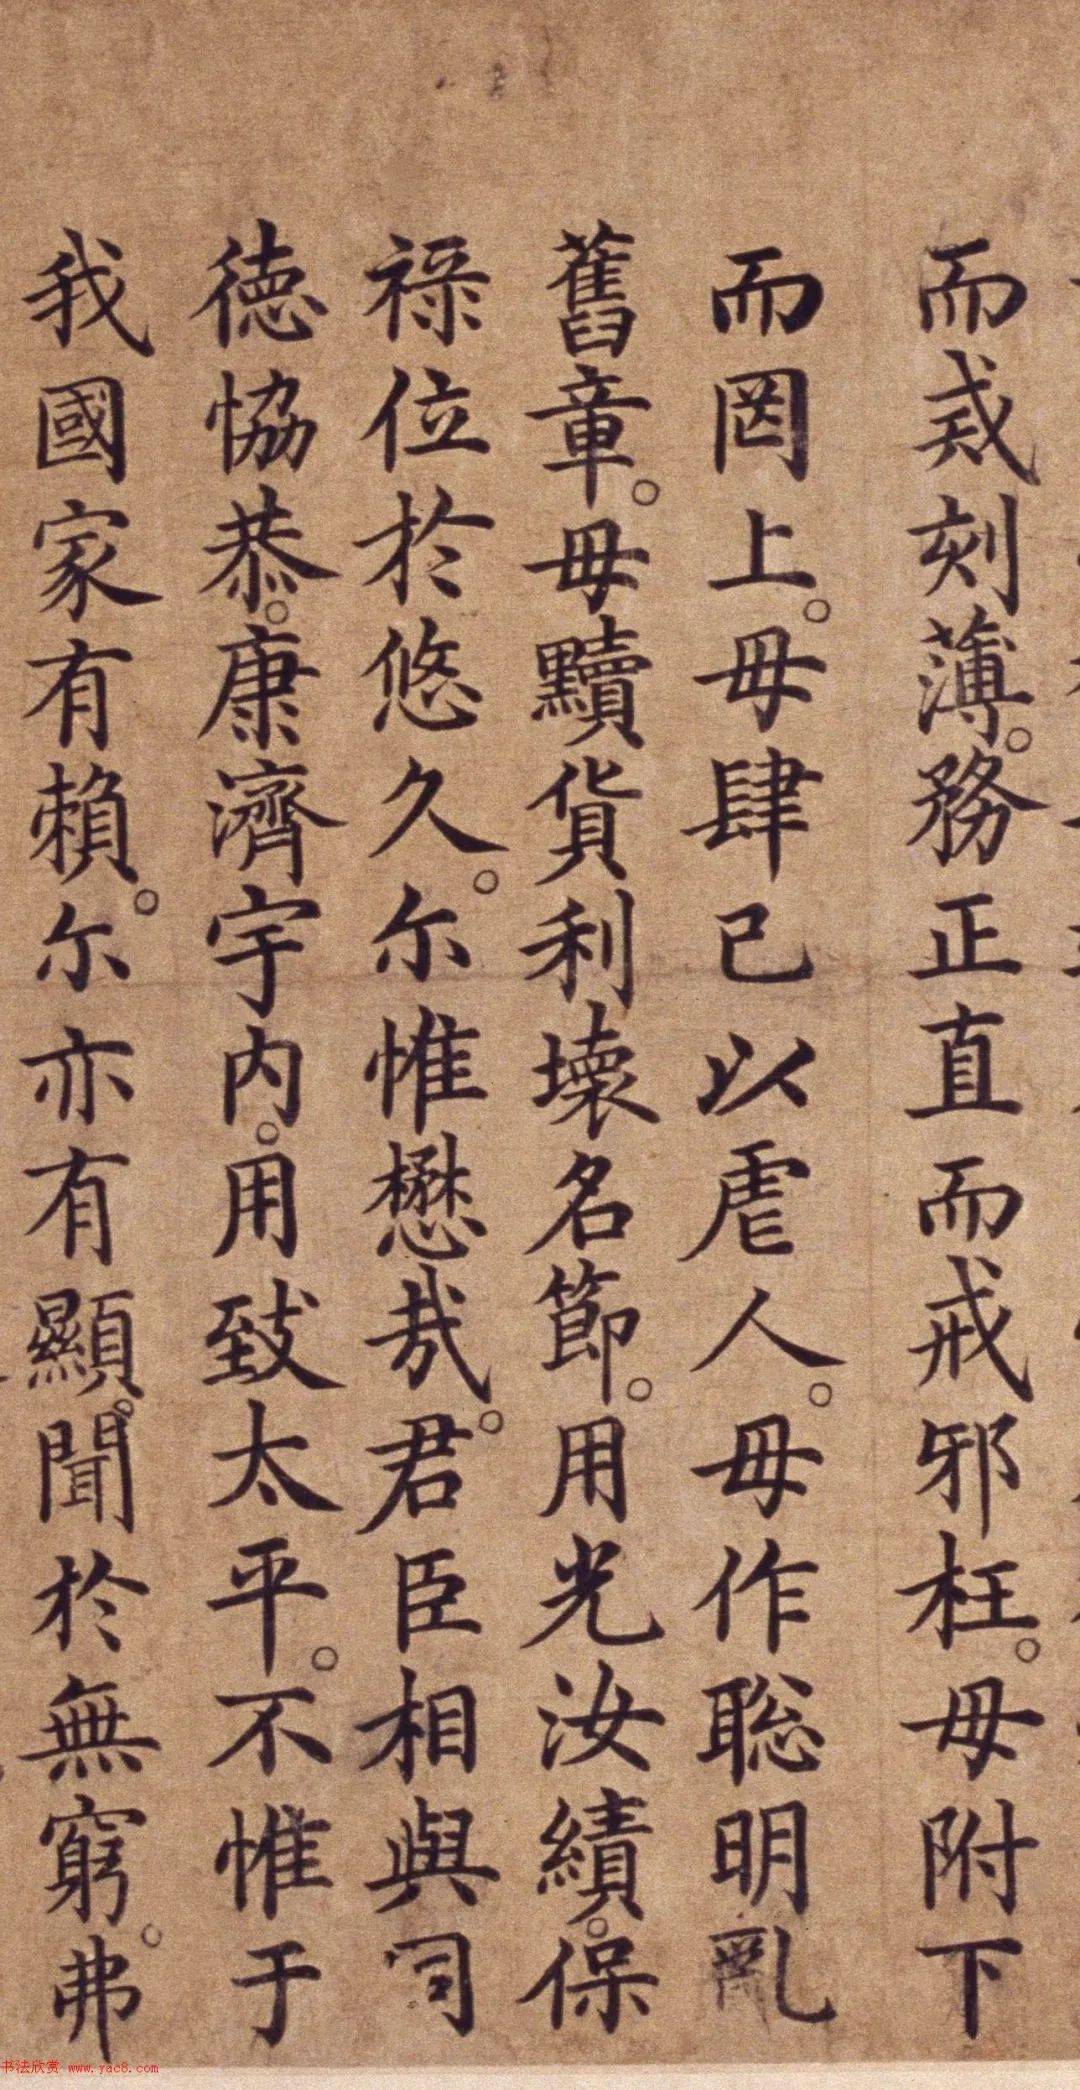 而戒刻薄。務正直而戒邪枉。毋附下
而罔上。毋肆己以虐人。毋作聡明亂
舊章。毋黷貨利壞名節。用光汝績。保
祿位於悠久。尔惟懋哉。君臣相與同
徳恊恭。康濟宇内。用致太平。不惟于
我國家有賴。尔亦有顯聞於無窮。弗
书法欣赏 www.yac8.com